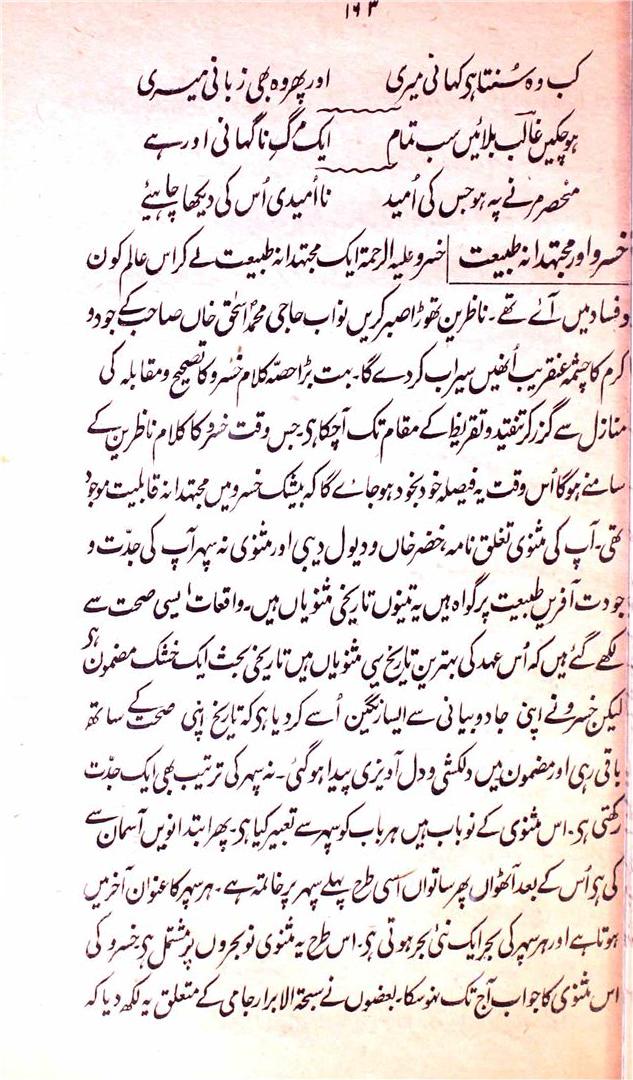 ۱۶۳
کب وہ سُنتا ہی کہانی میری اور پھر وہ بھی زبانی میری
ہو چکیں غالبؔ بلائیں سب تمام ایک مرگِ ناگہانی اور ہے
منحصر مرنے پہ ہو جس کی اُمید نا اُمیدی اُس کی دیکھا چاہیئے
خسرو اور مجتہدانہ طبیعت خسرو علیہ الرحمۃ ایک مجتہدانہ طبیعت لے کر اس عالم کون
و فساد میں آئے تھے۔ ناظرین تھوڑا صبر کریں نواب حاجی محمد اسحٰق خاں صاحب کے جود و
کرم کا چشمہ عنقریب اُنھیں سیراب کر دے گا۔ بہت بڑا حصّہ کلام خسرو کا تصحیح و مقابلہ کی
منازل سے گزر کر تنقید و تقریظ کے مقام تک آچکا ہی۔ جس وقت خسرو کا کلام ناظرین کے
سامنے ہوگا اُس وقت یہ فیصلہ خود بخود ہو جائے گا کہ بیشک خسرو میں مجتہدانہ قابلیت موجود
تھی۔ آپ کی مثنوی تغلق نامہ، خضر خاں و دیول دیبی اور مثنوی نہ سپہر آپ کی جدّت و
جودت آفریں طبیعت پر گواہ ہیں یہ تینوں تاریخی مثنویاں ہیں۔ واقعات ایسی صحت سے
لکھے گئے ہیں کہ اُس عہد کی بہترین تاریخ یہی مثنویاں ہیں تاریخی بحث ایک خشک مضمون ہی
لیکن خسرو نے اپنی جادو بیانی سے ایسا رنگین اُسے کر دیا ہی کہ تاریخ اپنی صحت کے ساتھ
باقی رہی اور مضمون میں دلکشی و دل آویزی پیدا ہو گئی۔ نہ سپہر کی ترتیب بھی ایک جدّت
رکھتی ہی۔ اس مثنوی کے نو باب ہیں ہر باب کو سپہر سے تعبیر کیا ہی۔ پھر ابتدا نویں آسمان سے
کی ہی اُس کے بعد آٹھواں پھر ساتواں اسی طرح پہلے سپہر پر خاتمہ ہے۔ ہر سپہر کا عنوان آخر میں
ہوتا ہے اور ہر سپہر کی بحر ایک نئی بحر ہوتی ہی۔ اس طرح یہ مثنوی نو بحروں پر مشتمل ہی خسرو کی
اس مثنوی کا جواب آج تک نہو سکا۔ بعضوں نے سبحۃ الابرار جامی کے متعلق یہ لکھ دیا کہ